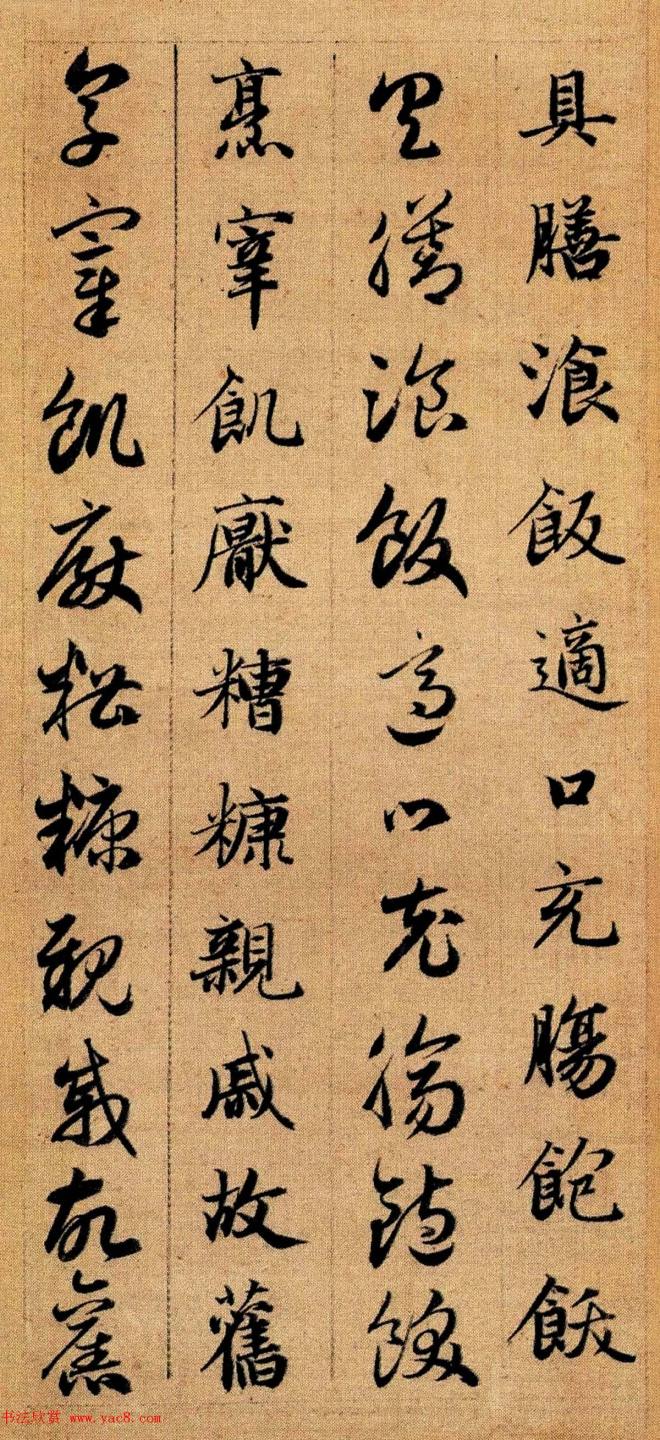 具膳湌飯適口充腸飽飫
具膳湌飯適口充腸飽飫
烹宰飢厭糟糠親戚故舊
烹宰飢厭糟糠親戚故舊
书法欣赏 www.yac8.com